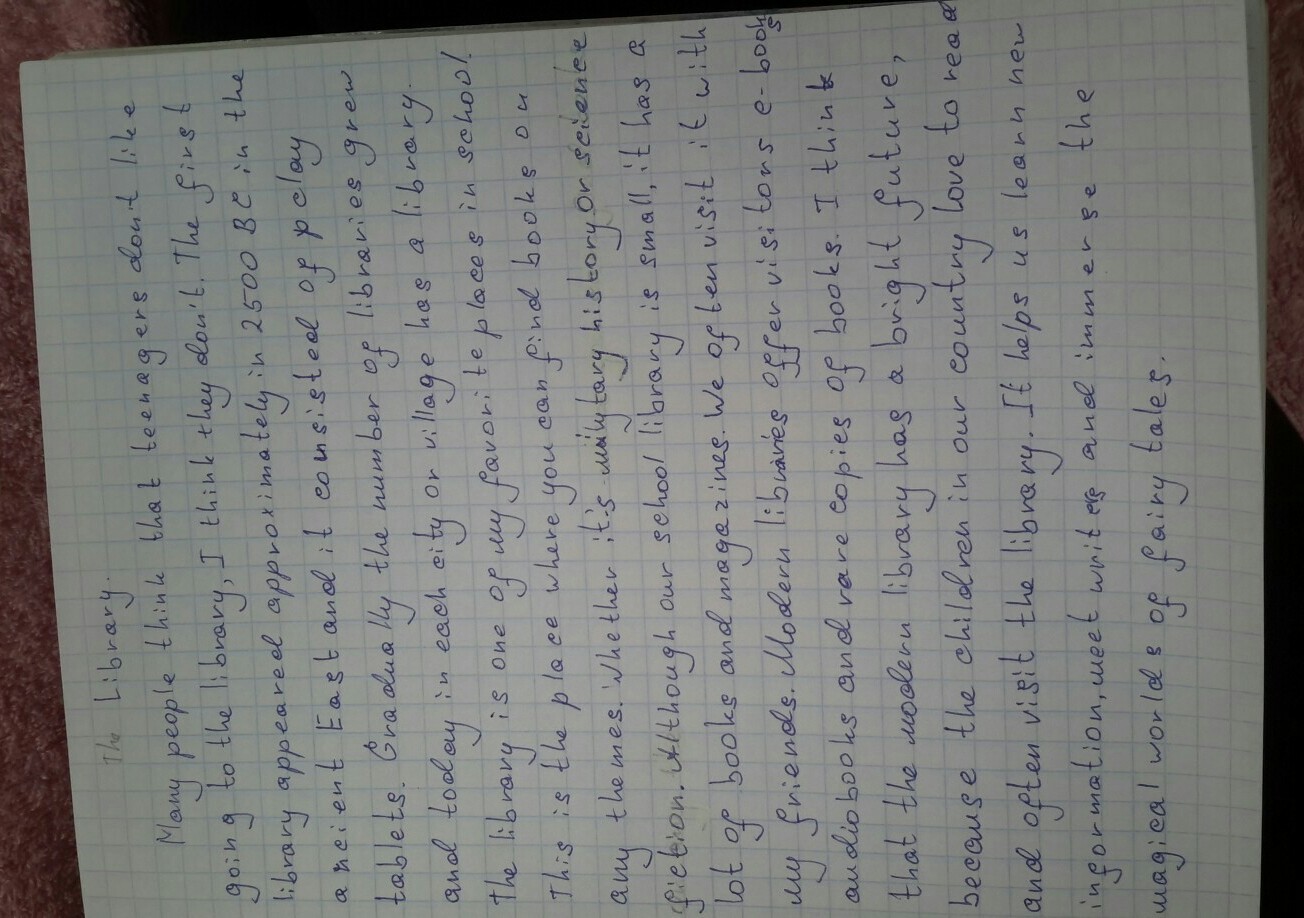 The Library.
Many people think that teenagers dont like
going to the library, I think they don't. The first
library appeared approximately in 2500 BC in the
ancient East and it consisted of pclay
tablets. Gradually the number of libraries grew
and today in each city or village has a library.
The library is one of my favorite places in school
This is the place where you can find books on
any themes. Whether it's military history or science
fiction. Although our school library is small, it has a
lot of books and magazines. We often visit it with
my friends. Modern libraries offer visitors e-books
audiobooks and rare copies of books. I think
that the modern library has a bright future,
because the children in our country love to read
and often visit the library. It helps us learn new
information, meet writers and immerse the
magical worlds of fairy tales.